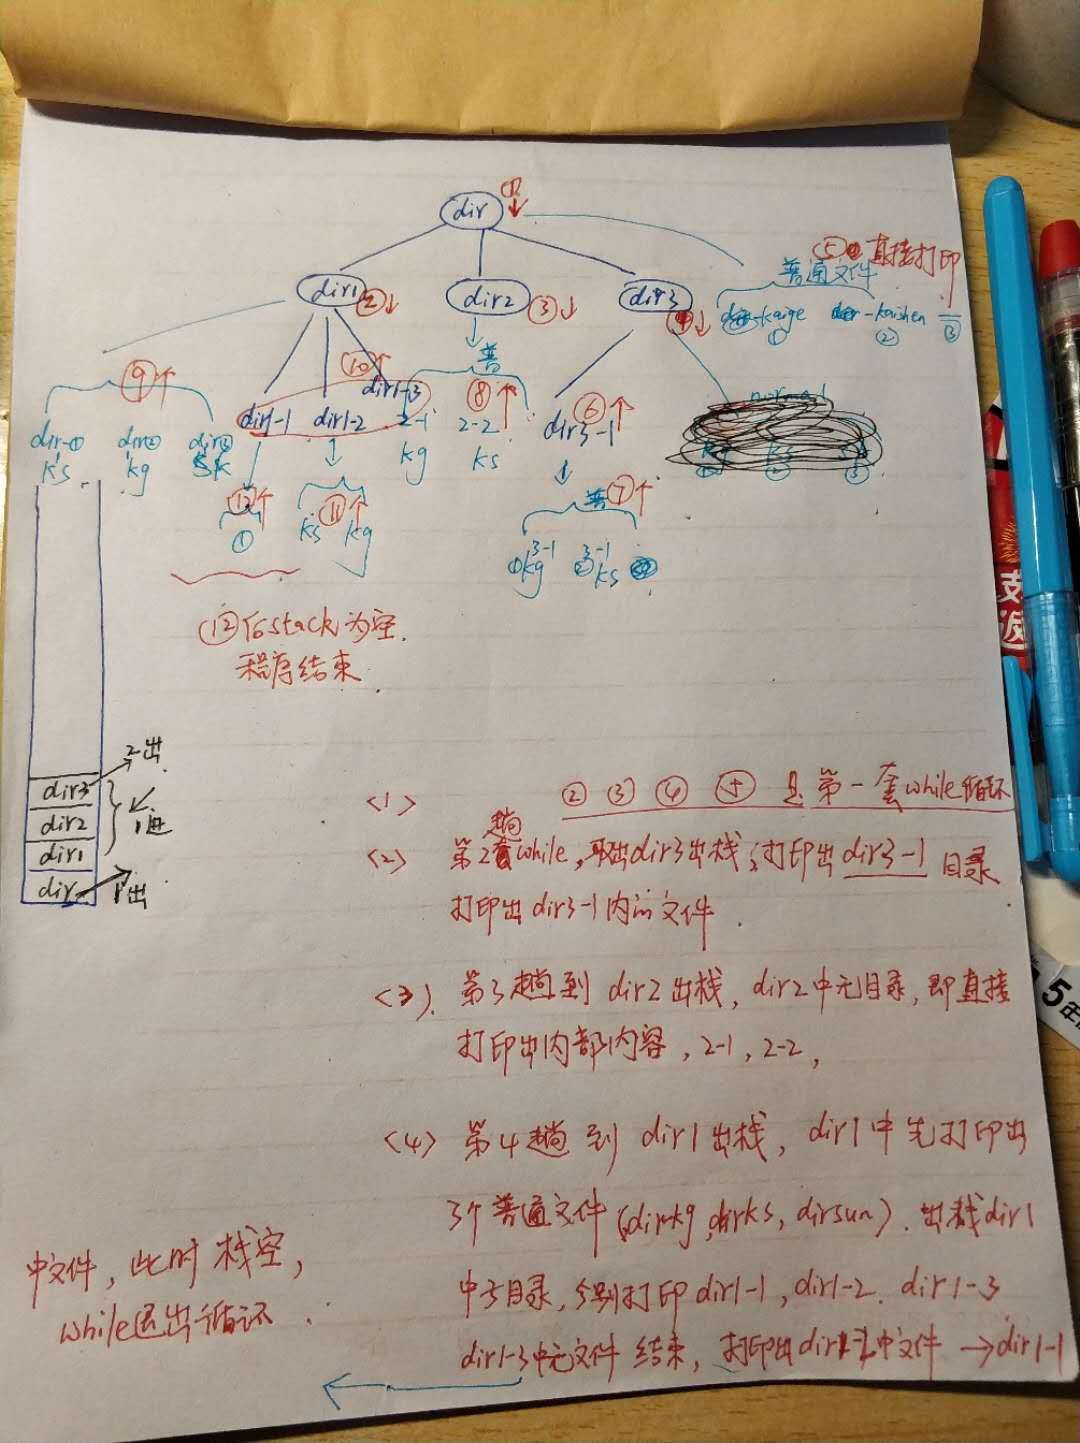 dir ① ↓
⑤ 直接打印
普通文件
dir1 ② ↓
dir2 ③ ↓
dir3 ④ ↓
-kaige
①
-kaishen
②
③
⑨ ↑
⑩ ↑
普
dir1-3
dir1-1
dir1-2
2-1
kg
⑧ ↑
2-2
ks
⑥ ↑
dir3-1
dir①
ks
dir②
kg
dir③
⑫ ↑
①
ks
⑪ ↑
kg
普 ⑦ ↑
① 3-1
kg
② 3-1
ks
⑫后stack为空.
程序结束
2出
dir3
dir2
dir1
dir
1进
1出
<1> ② ③ ④ ⑤ 是第一套while循环
<2> 第2趟while,取出dir3出栈;打印出dir3-1目录
打印出dir3-1内的文件.
<3>. 第3趟到dir2出栈,dir2中无目录,即直接
打印出内部内容,2-1,2-2,
<4> 第4趟到dir1出栈,dir1中先打印出
3个普通文件(dirkg,dirks,dirsun).出栈dir1
中子目录,分别打印dir1-1,dir1-2.dir1-3
dir1-3中无文件结束,打印出dir1-2中文件→dir1-1
中文件,此时栈空,
while退出循环.
5年